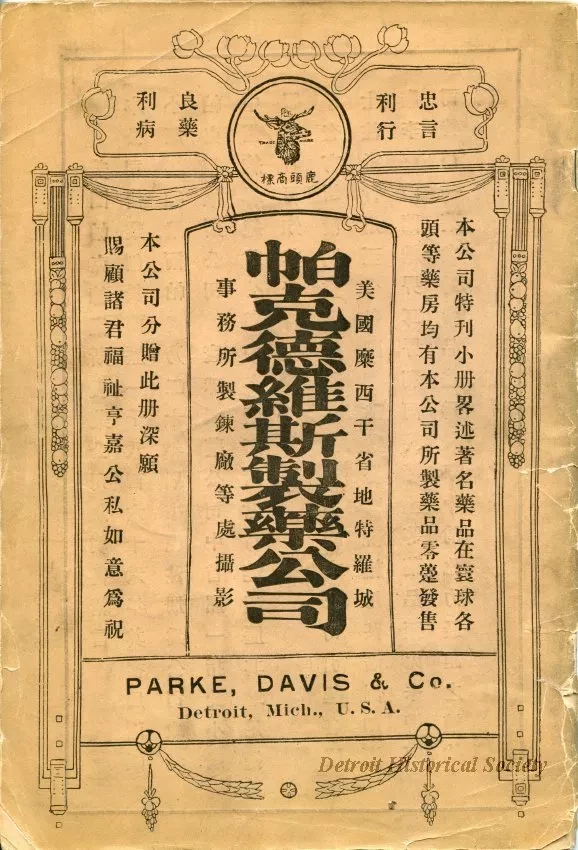 忠言
利行
良藥
利病
TRADE MARK
鹿頭商標
本公司特刊小册畧述著名藥品在寰球各
頭等藥房均有本公司所製藥品零躉發售
美國麋西干省地特羅城
帕克德維斯製藥公司
事務所製鍊廠等處攝影
本公司分贈此册深願
賜顧諸君福祉亨嘉公私如意爲祝
PARKE, DAVIS & Co.
Detroit, Mich., U. S. A.
Detroit Historical Society